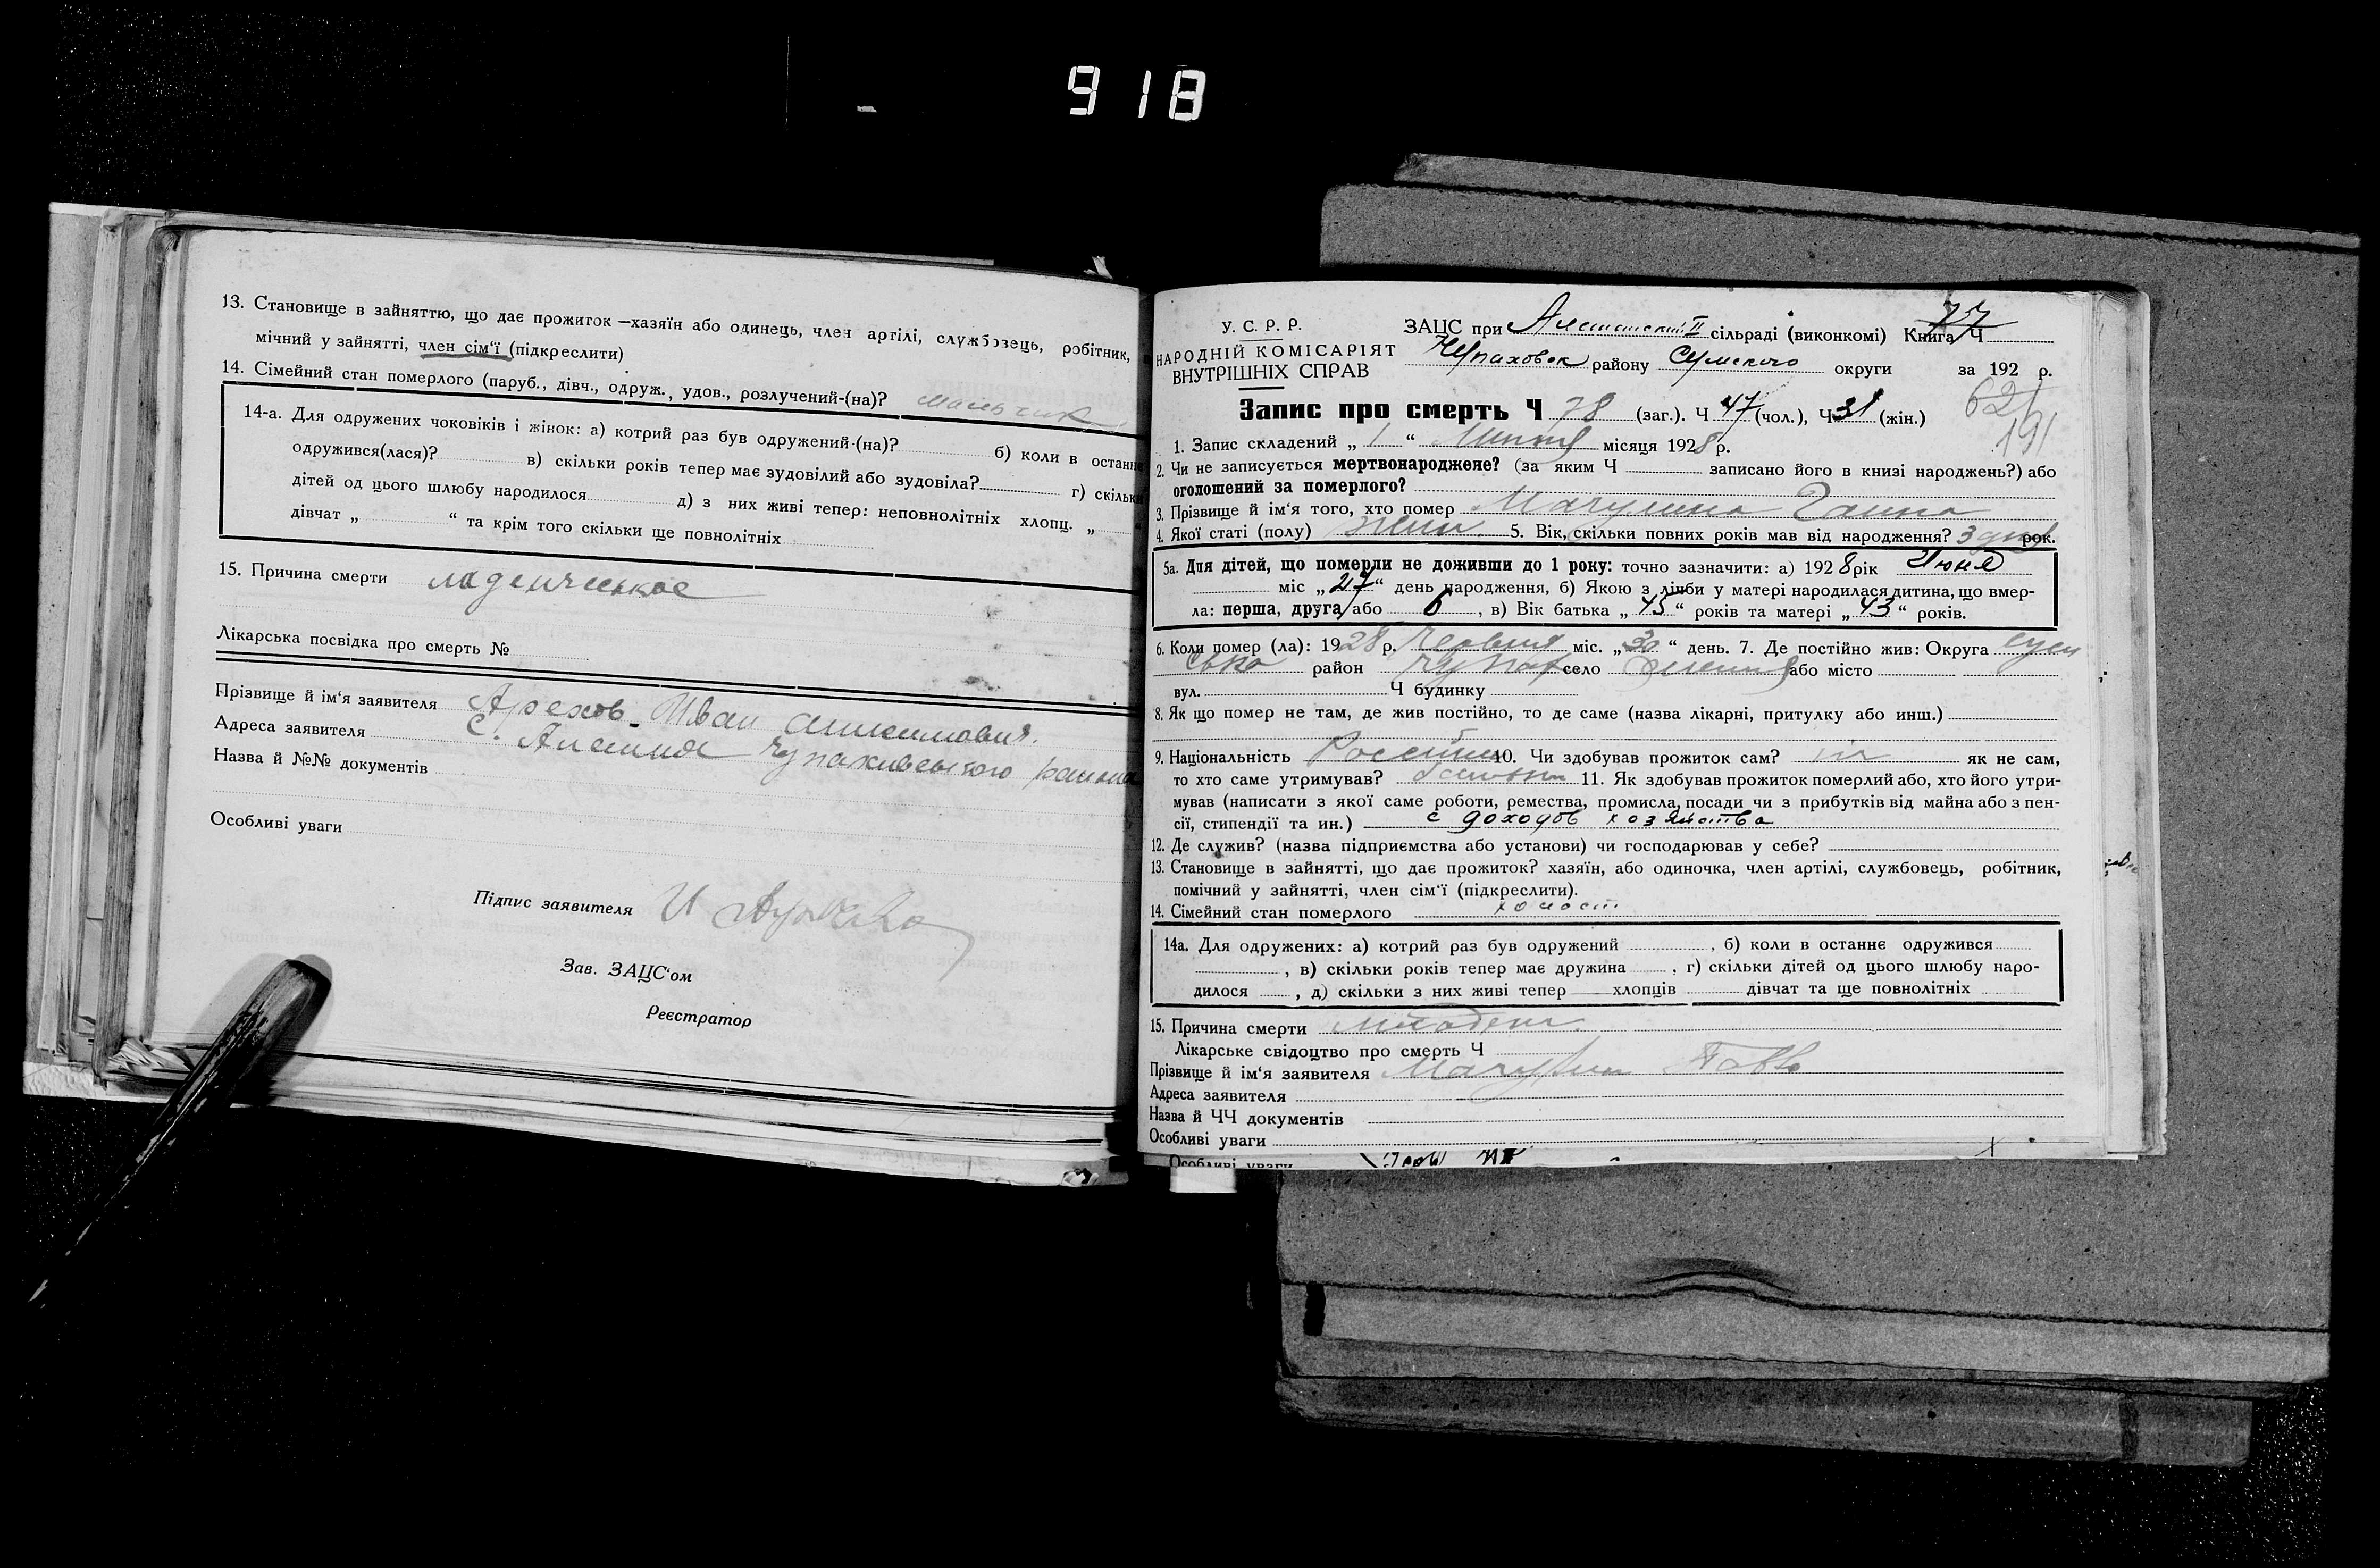 918
13. Становище в зайняттю, що дає прожиток—хазяїн або одинець, член артілі, службовець, робітник,
мічний у зайнятті, член сім'ї (підкреслити)
14. Сімейний стан померлого (паруб., дівч., одруж., удов., розлучений-(на)? мальчик
14-а. Для одружених чоковіків і жінок: а) котрий раз був одружений-(на)? б) коли в останнє
одружився(лася)? в) скільки років тепер має зудовілий або зудовіла? г) скільки
дітей од цього шлюбу народилося д) з них живі тепер: неповнолітніх хлопц. „ “
дівчат „ “ та крім того скільки ще повнолітніх
15. Причина смерти
Лікарська посвідка про смерть №
Прізвище й ім'я заявителя Арехов Иван
Адреса заявителя с. Алешня Чупаховського района
Назва й №№ документів
Особливі уваги
Підпис заявителя И
Зав. ЗАЦС'ом
Реєстратор
У. С. Р. Р.
НАРОДНІЙ КОМІСАРІЯТ
ВНУТРІШНІХ СПРАВ
ЗАЦС при Алешанский II сільраді (виконкомі) Книга Ч 77
Чупаховск району Сумского округи за 192 р.
62
191
Запис про смерть Ч 78 (заг.). Ч 47 (чол.), Ч 31 (жін.)
1. Запис складений „ 1 “ Липня місяця 1928 р.
2. Чи не записується мертвонароджене? (за яким Ч записано його в книзі народжень?) або
оголошений за померлого?
3. Прізвище й ім'я того, хто помер Мачулина Ганна
4. Якої статі (полу) жин. 5. Вік, скільки повних років мав від народження? 3 дня рок.
5а. Для дітей, що померли не доживши до 1 року: точно зазначити: а) 1928 рік Июня
міс „ 27 “ день народження, б) Якою з лічби у матері народилася дитина, що вмер-
ла: перша, друга або 6 , в) Вік батька „ 45 “ років та матері „ 43 “ років.
6. Коли помер (ла): 1928 р. Червня міс. „ 30 “ день. 7. Де постійно жив: Округа Сум
ська район Чупах село або місто
вул. Ч будинку
8. Як що помер не там, де жив постійно, то де саме (назва лікарні, притулку або инш.)
9. Національність 10. Чи здобував прожиток сам? ні як не сам,
то хто саме утримував? 11. Як здобував прожиток померлий або, хто його утри-
мував (написати з якої саме роботи, ремества, промисла, посади чи з прибутків від майна або з пен-
сії, стипендії та ин.) с доходов хозяйства
12. Де служив? (назва підприємства або установи) чи господарював у себе?
13. Становище в зайнятті, що дає прожиток? хазяїн, або одиночка, член артілі, службовець, робітник,
помічний у зайнятті, член сім'ї (підкреслити).
14. Сімейний стан померлого холост
14а. Для одружених: а) котрий раз був одружений , б) коли в останнє одружився
, в) скільки років тепер має дружина , г) скільки дітей од цього шлюбу наро-
дилося , д) скільки з них живі тепер хлопців дівчат та ще повнолітніх
15. Причина смерти
Лікарське свідоцтво про смерть Ч
Прізвище й ім'я заявителя Мачулин Павло
Адреса заявителя
Назва й ЧЧ документів
Особливі уваги
Особливі уваги